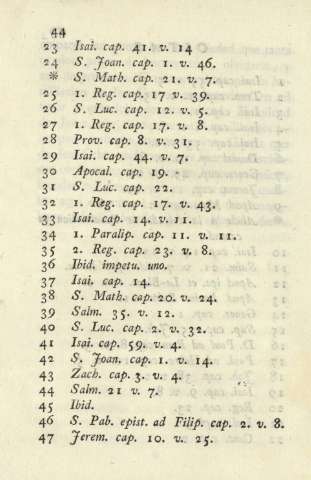 44
23 Isai. cap. 41. v. 14
24 S. Joan. cap. 1. v. 46.
* S. Math. cap. 21. v. 7.
25 1. Reg. cap. 17 v. 39.
26 S. Luc. cap. 12. v. 5.
27 1. Reg. cap. 17. v. 8.
28 Prov. cap. 8. v. 31.
29 Isai. cap. 44. v. 7.
30 Apocal. cap. 19.
31 S. Luc. cap. 22.
32 1. Reg. cap. 17. v. 43.
33 Isai. cap. 14. v. 11.
34 1. Paralip. cap. 11. v. 11.
35 2. Reg. cap. 23. v. 8.
36 Ibid. impetu. uno.
37 Isai. cap. 14.
38 S. Math. cap. 20. v. 24.
39 Salm. 35. v. 12.
40 S. Luc. cap. 2. v. 32.
41 Isai. cap. 59. v. 4.
42 S. Joan. cap. 1. v. 14.
43 Zach. cap. 3. v. 4.
44 Salm. 21 v. 7.
45 Ibid.
46 S. Pab. epist. ad Filip. cap. 2. v. 8.
47 Jerem. cap. 10. v. 25.